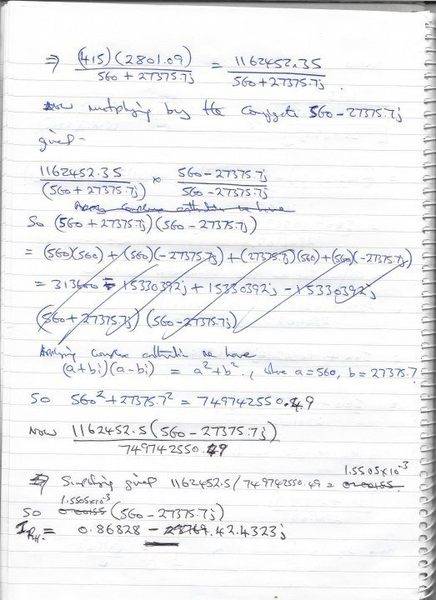 ⇒ (415)(2801.09) / 560 + 27375.7j = 1162452.35 / 560 + 27375.7j.
Now multiplying by the Conjugate 560 - 27375.7j
gives -
1162452.35 / (560 + 27375.7j) × 560 - 27375.7j / 560 - 27375.7j
So (560 + 27375.7j)(560 - 27375.7j)
= (560)(560) + (560)(-27375.7j) + (27375.7j)(560) + (560)(-27375.7j)
= 313600 - 15330392j + 15330392j - 15330392j
(560 + 27375.7j)(560 - 27375.7j)
Applying complex arithmetic we have
(a+bi)(a-bi) = a²+b², where a=560, b=27375.7
So 560² + 27375.7² = 749742550.49
Now 1162452.5(560 - 27375.7j) / 749742550.49
⇒ Simplifying gives 1162452.5/749742550.49 = 1.5505×10⁻³
So 1.5505×10⁻³ (560 - 27375.7j)
= 0.86828 - 42.4323j